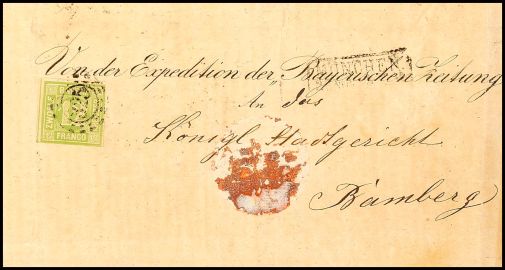 Von der Expedition der „Bayerischen Zeitung
MÜNCHEN
An das
Königl. Stadtgericht
Bamberg
FRANCO